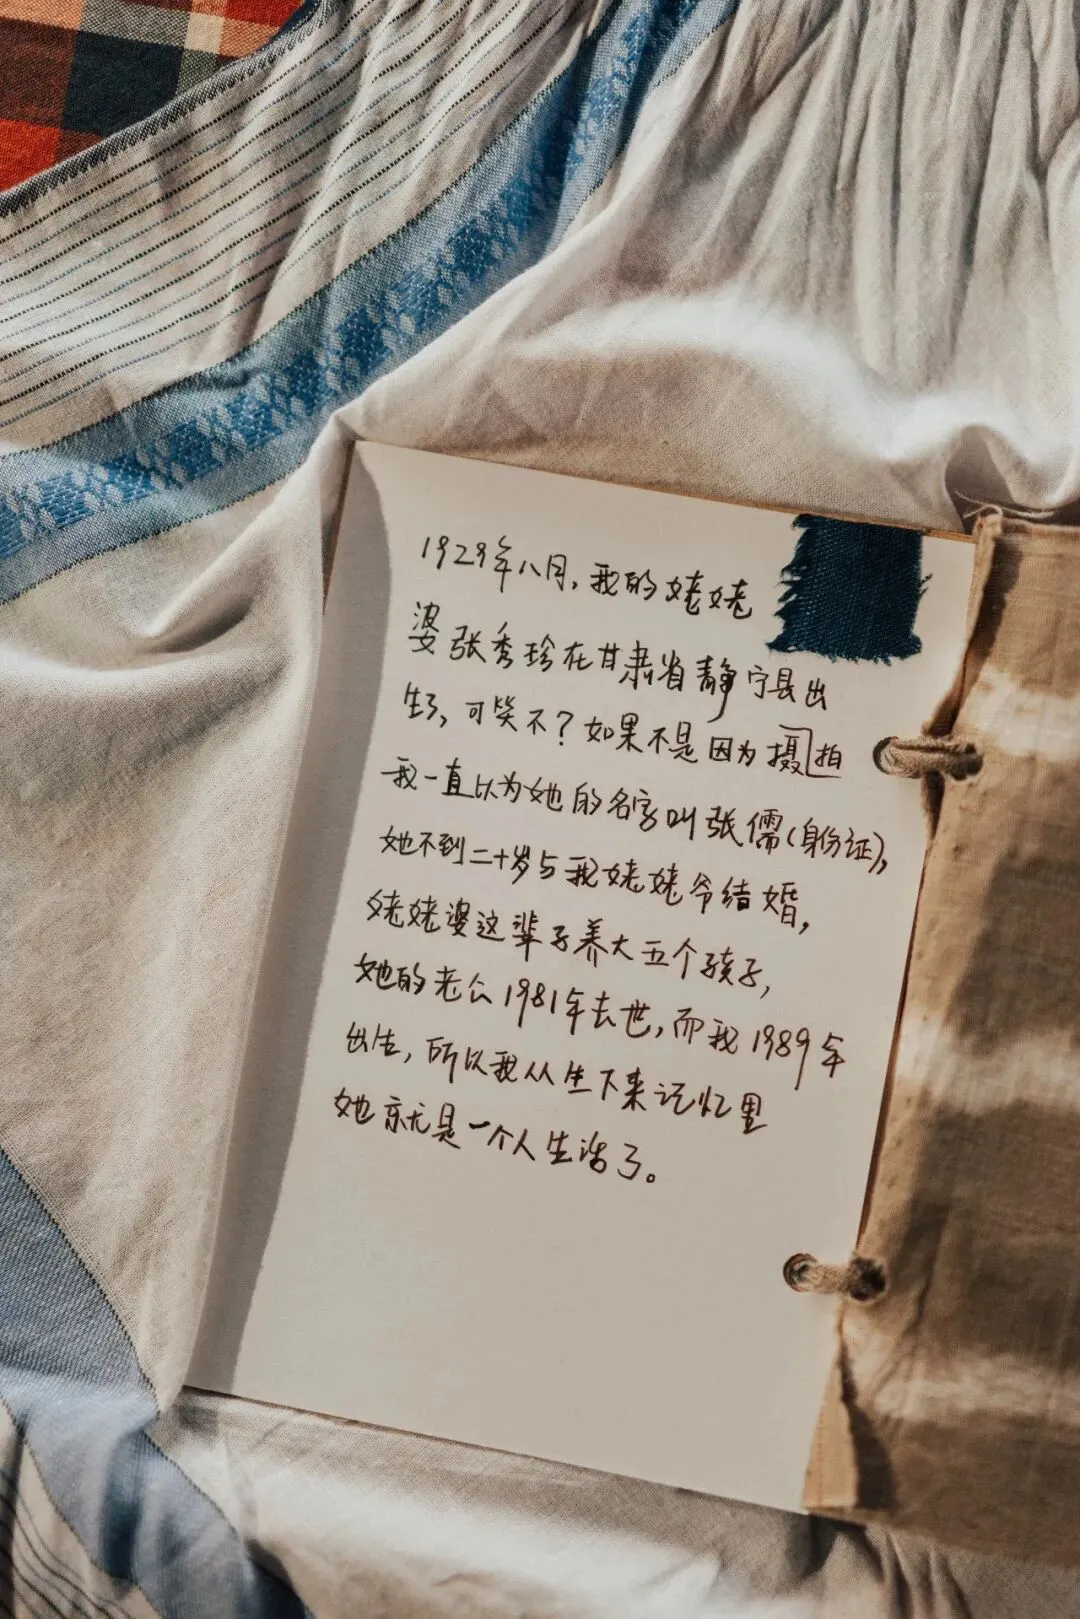 1929年八月，我的姥姥
婆张秀珍在甘肃省静宁县出
生了，可笑不？如果不是因为摄拍
我一直以为她的名字叫张儒（身份证），
她不到二十岁与我姥姥爷结婚，
姥姥婆这辈子养大五个孩子，
她的老公1981年去世，而我1989年
出生，所以我从生下来记忆里
她就是一个人生活了。